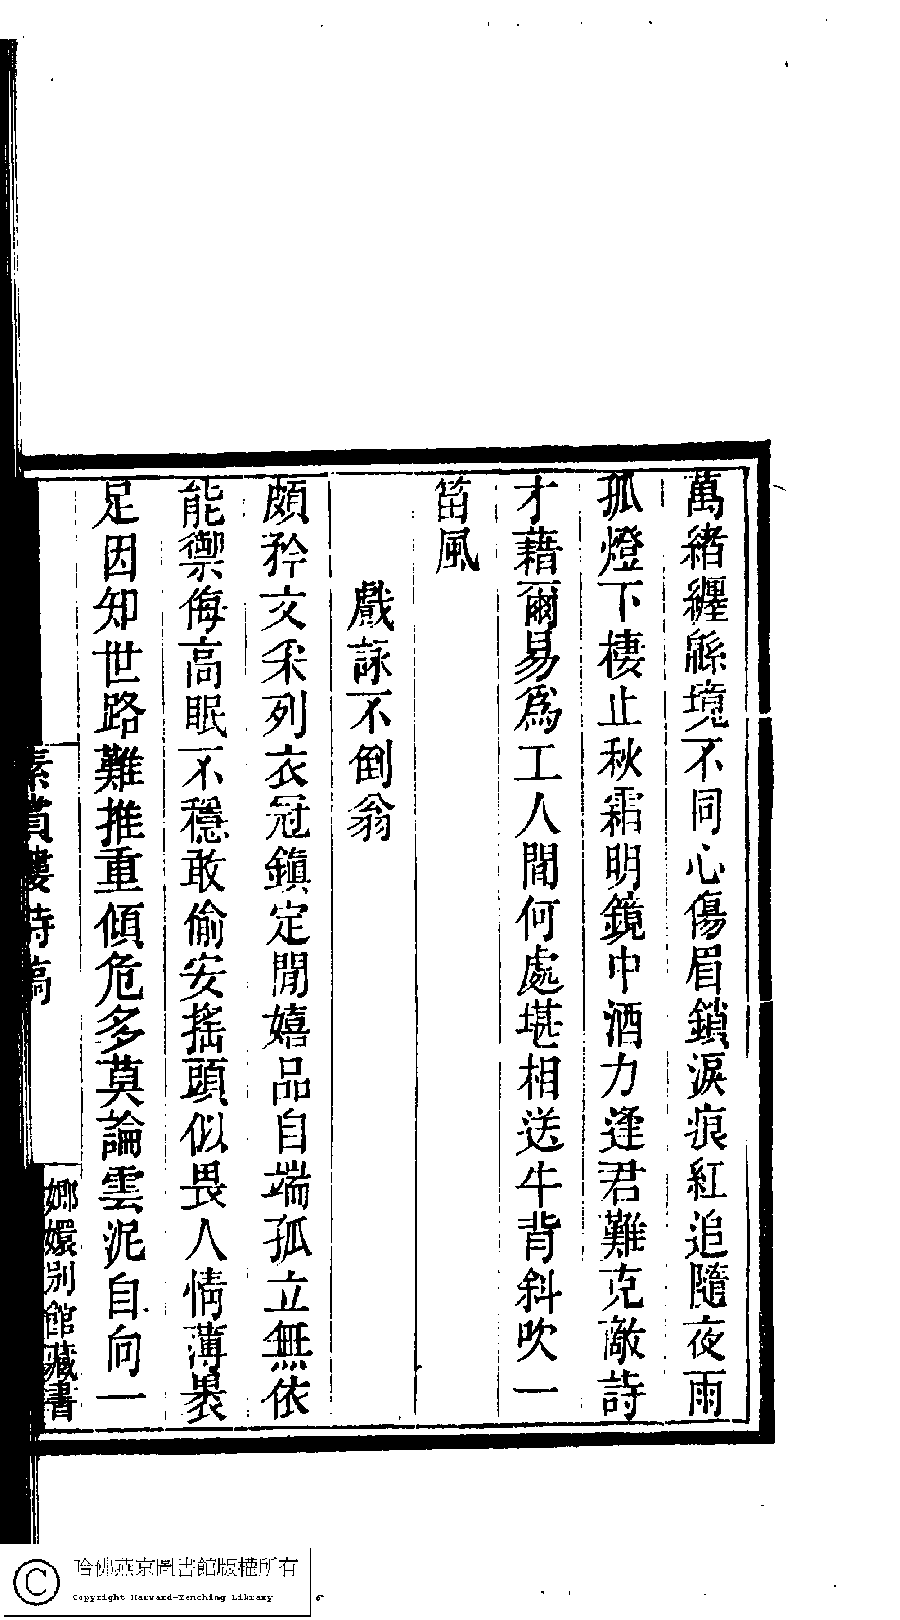 萬緒纏緜境不同心傷眉鎖淚痕紅追隨夜雨
孤燈下棲止秋霜明鏡中酒力逢君難克敵詩
才藉爾易爲工人間何處堪相送牛背斜吹一
笛風
戲詠不倒翁
頗矜文采列衣冠鎮定閒嬉品自端孤立無依
能禦侮高眠不穩敢偷安搖頭似畏人情薄裹
足因知世路難推重傾危多莫論雲泥自向一
素賞樓詩稿
嫏嬛別館藏書
哈佛燕京圖書館版權所有
Copyright Harvard-Yenching Library